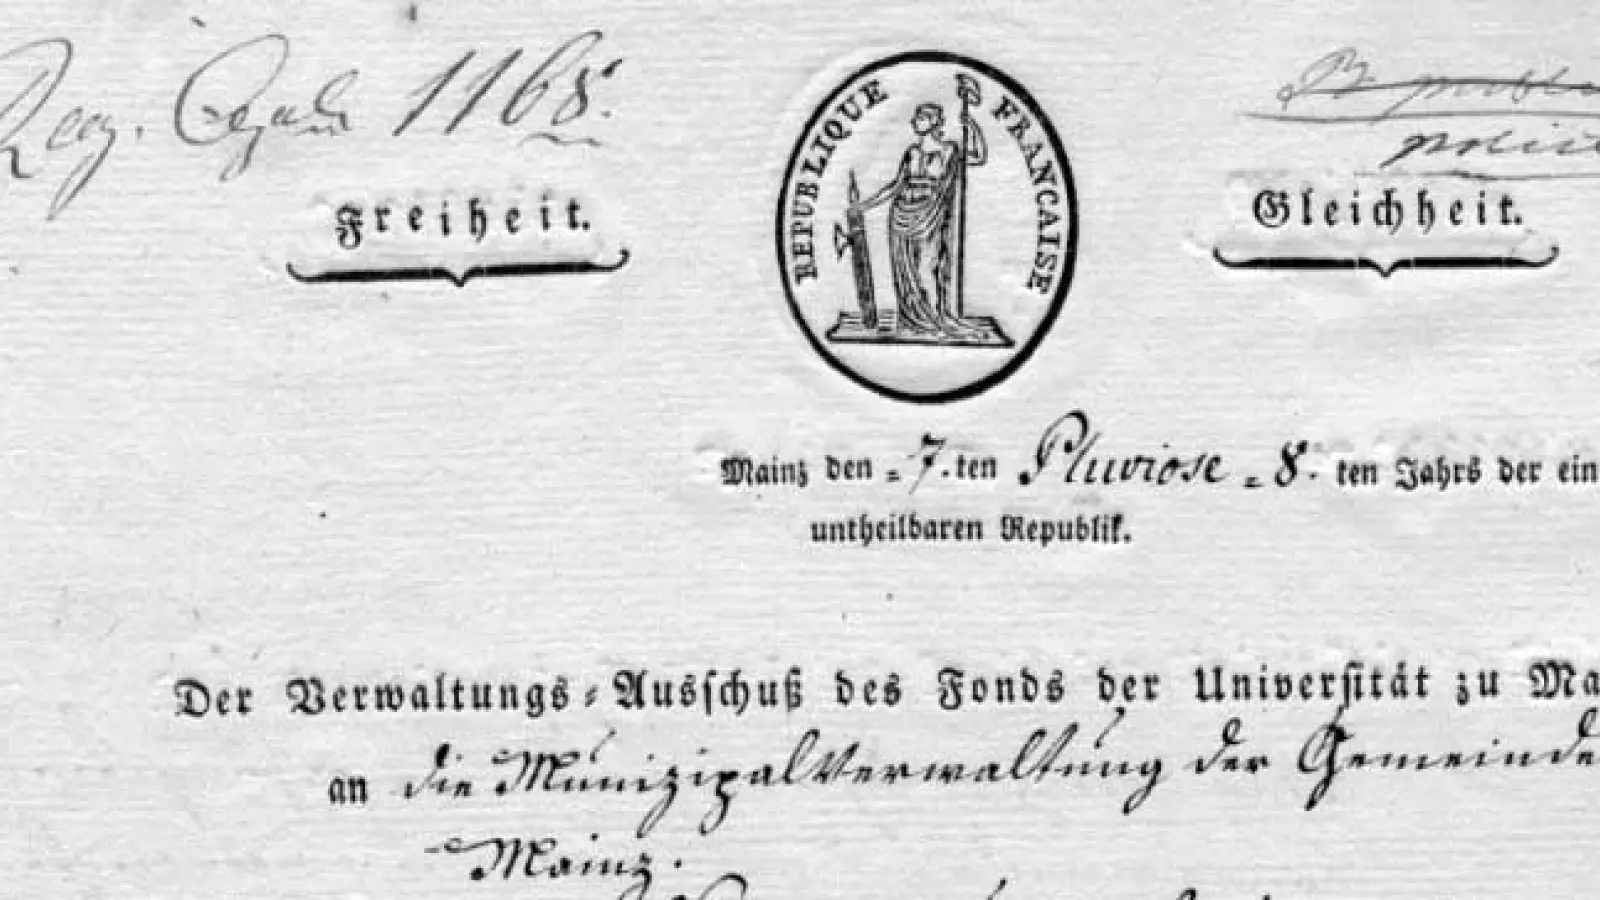 Reg. 1168.
Freiheit.
REPUBLIQUE FRANCAISE
Gleichheit.
Mainz den 7. ten Pluviose 8. ten Jahrs der ein
untheilbaren Republik.
Der Verwaltungs-Ausschuß des Fonds der Universität zu Ma
an die MunizipalVerwaltung der Gemeinde
Mainz.